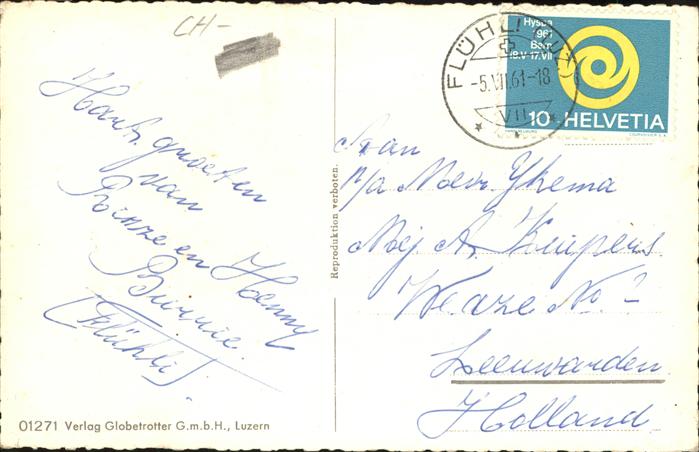 CH-
Hyspa
1961
Bern
18.V-17.VII
10 HELVETIA
COURVOISIER S.A.
FLÜHLI (LU)
-5.VII.61-18
VII
Hart. groeten
van
Rinze en Henny
(Flühli)
Reproduktion verboten.
Aan
p/a Mevr. Ykema
Mej A. Kuipers
Weaze No 2
Leeuwarden
Holland
01271 Verlag Globetrotter G.m.b.H., Luzern